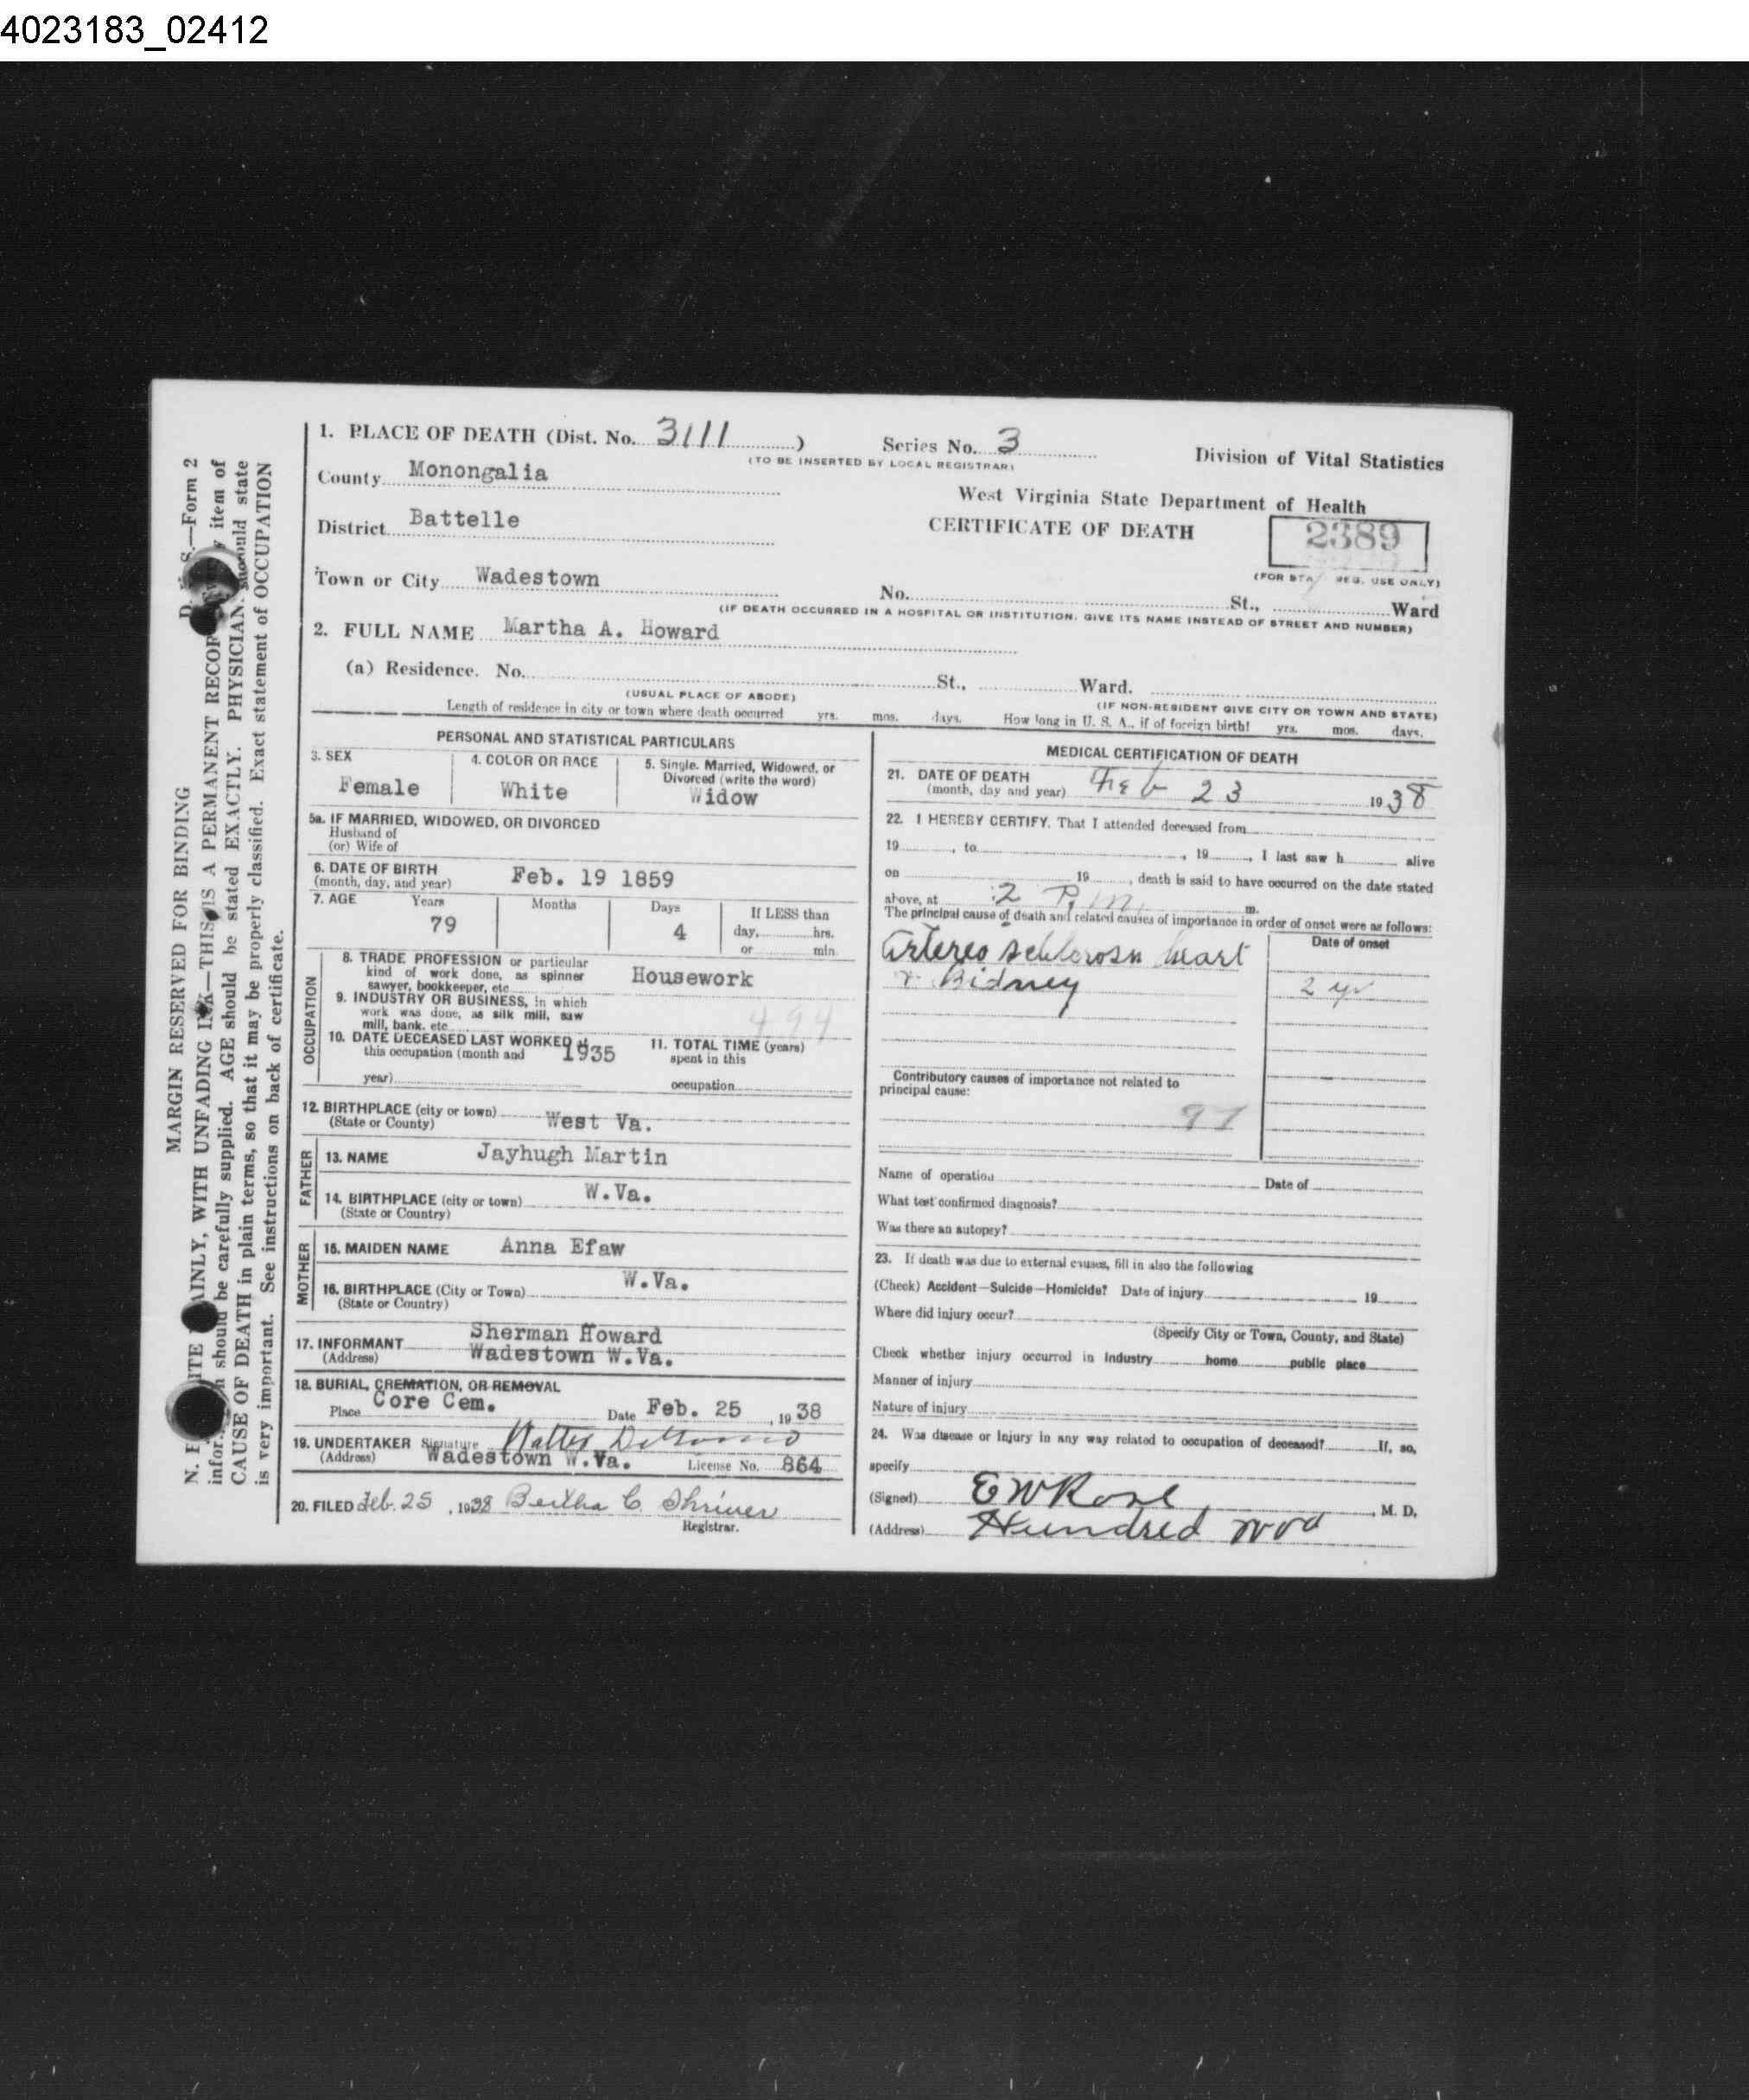 4023183_02412
1. PLACE OF DEATH (Dist. No. 3111 ) Series No. 3
(TO BE INSERTED BY LOCAL REGISTRAR)
Division of Vital Statistics
County Monongalia
West Virginia State Department of Health
District Battelle
CERTIFICATE OF DEATH
2389
(FOR STA REG. USE ONLY)
Town or City Wadestown
No. St., Ward
(IF DEATH OCCURRED IN A HOSPITAL OR INSTITUTION, GIVE ITS NAME INSTEAD OF STREET AND NUMBER)
2. FULL NAME Martha A. Howard
(a) Residence. No. St., Ward.
(USUAL PLACE OF ABODE)
(IF NON-RESIDENT GIVE CITY OR TOWN AND STATE)
Length of residence in city or town where death occurred yrs. mos. days. How long in U. S. A., if of foreign birth? yrs. mos. days.
PERSONAL AND STATISTICAL PARTICULARS
3. SEX
Female
4. COLOR OR RACE
White
5. Single. Married, Widowed, or
Divorced (write the word)
Widow
5a. IF MARRIED, WIDOWED, OR DIVORCED
Husband of
(or) Wife of
6. DATE OF BIRTH
(month, day, and year) Feb. 19 1859
7. AGE Years Months Days If LESS than
79 4 day, hrs.
or min.
OCCUPATION
8. TRADE PROFESSION or particular
kind of work done, as spinner
sawyer, bookkeeper, etc. Housework
9. INDUSTRY OR BUSINESS, in which
work was done, as silk mill, saw
mill, bank. etc. 494
10. DATE DECEASED LAST WORKED at
this occupation (month and
year) 1935
11. TOTAL TIME (years)
spent in this
occupation
12. BIRTHPLACE (city or town)
(State or County) West Va.
FATHER
13. NAME Jayhugh Martin
14. BIRTHPLACE (city or town) W.Va.
(State or Country)
MOTHER
15. MAIDEN NAME Anna Efaw
16. BIRTHPLACE (City or Town) W.Va.
(State or Country)
17. INFORMANT Sherman Howard
(Address) Wadestown W.Va.
18. BURIAL, CREMATION, OR REMOVAL
Place Core Cem. Date Feb. 25 , 1938
19. UNDERTAKER Signature Walter
(Address) Wadestown W.Va. License No. 864
20. FILED Feb. 25 , 1938 Bertha C. Shriver
Registrar.
MEDICAL CERTIFICATION OF DEATH
21. DATE OF DEATH
(month, day and year) Feb 23 1938
22. I HEREBY CERTIFY, That I attended deceased from
19 , to , 19 , I last saw h alive
on 19 , death is said to have occurred on the date stated
above, at 2 P.m. m.
The principal cause of death and related causes of importance in order of onset were as follows:
Date of onset
Artereo schlerosis heart
& Kidney 2 yr
Contributory causes of importance not related to
principal cause:
97
Name of operation Date of
What test confirmed diagnosis?
Was there an autopsy?
23. If death was due to external causes, fill in also the following
(Check) Accident—Suicide—Homicide? Date of injury 19
Where did injury occur?
(Specify City or Town, County, and State)
Check whether injury occurred in Industry home public place
Manner of injury
Nature of injury
24. Was disease or injury in any way related to occupation of deceased? If, so,
specify
(Signed) E W Rose , M. D.
(Address) Hundred
D. S.—Form 2
MARGIN RESERVED FOR BINDING
AINLY, WITH UNFADING INK—THIS IS A PERMANENT RECOR item of
should be carefully supplied. AGE should be stated EXACTLY. PHYSICIAN should state
CAUSE OF DEATH in plain terms, so that it may be properly classified. Exact statement of OCCUPATION
is very important. See instructions on back of certificate.